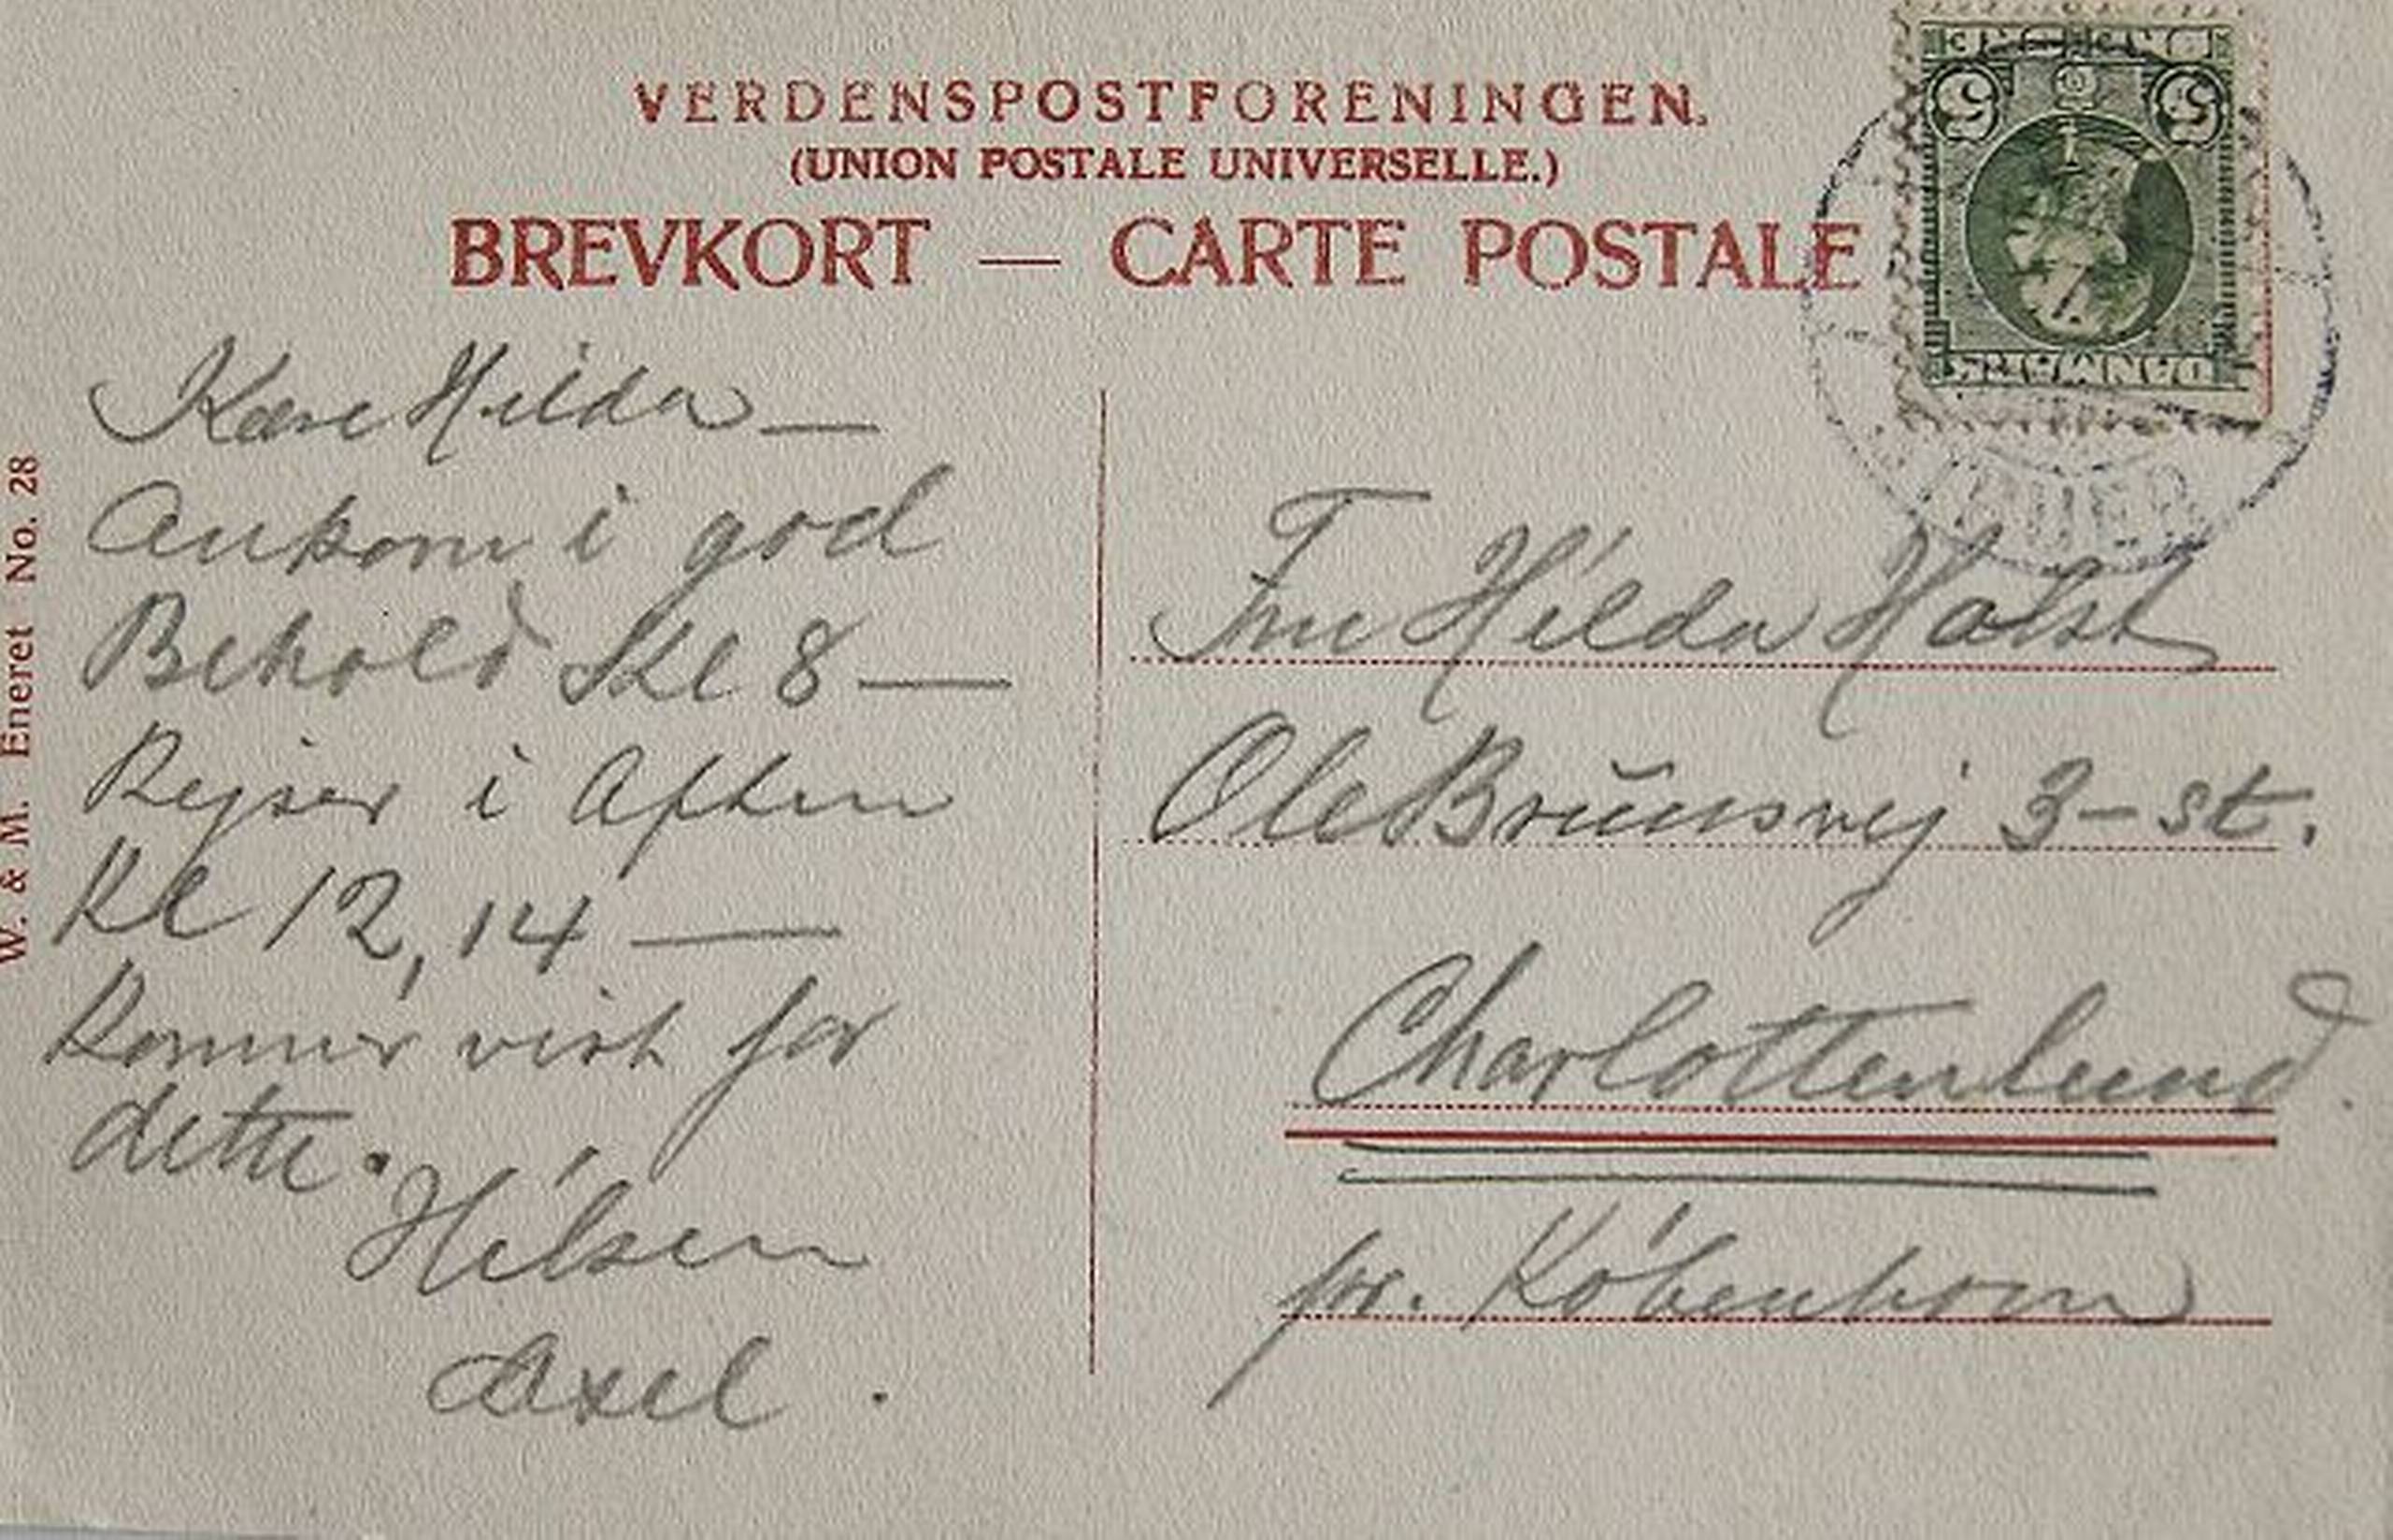 VERDENSPOSTFORENINGEN.
(UNION POSTALE UNIVERSELLE.)
BREVKORT — CARTE POSTALE
W. & M. Eneret No. 28
Kære Hilda —
Ankom i god
Behold Kl 8 —
Rejser i Aften
Kl 12,14 —
Kommer vist før
dette.
Hilsen
Axel.
Fru Hilda Holst
Ole Brŭunsvej 3 – st.
Charlottenlund.
pr. København
DANMARK
5 5